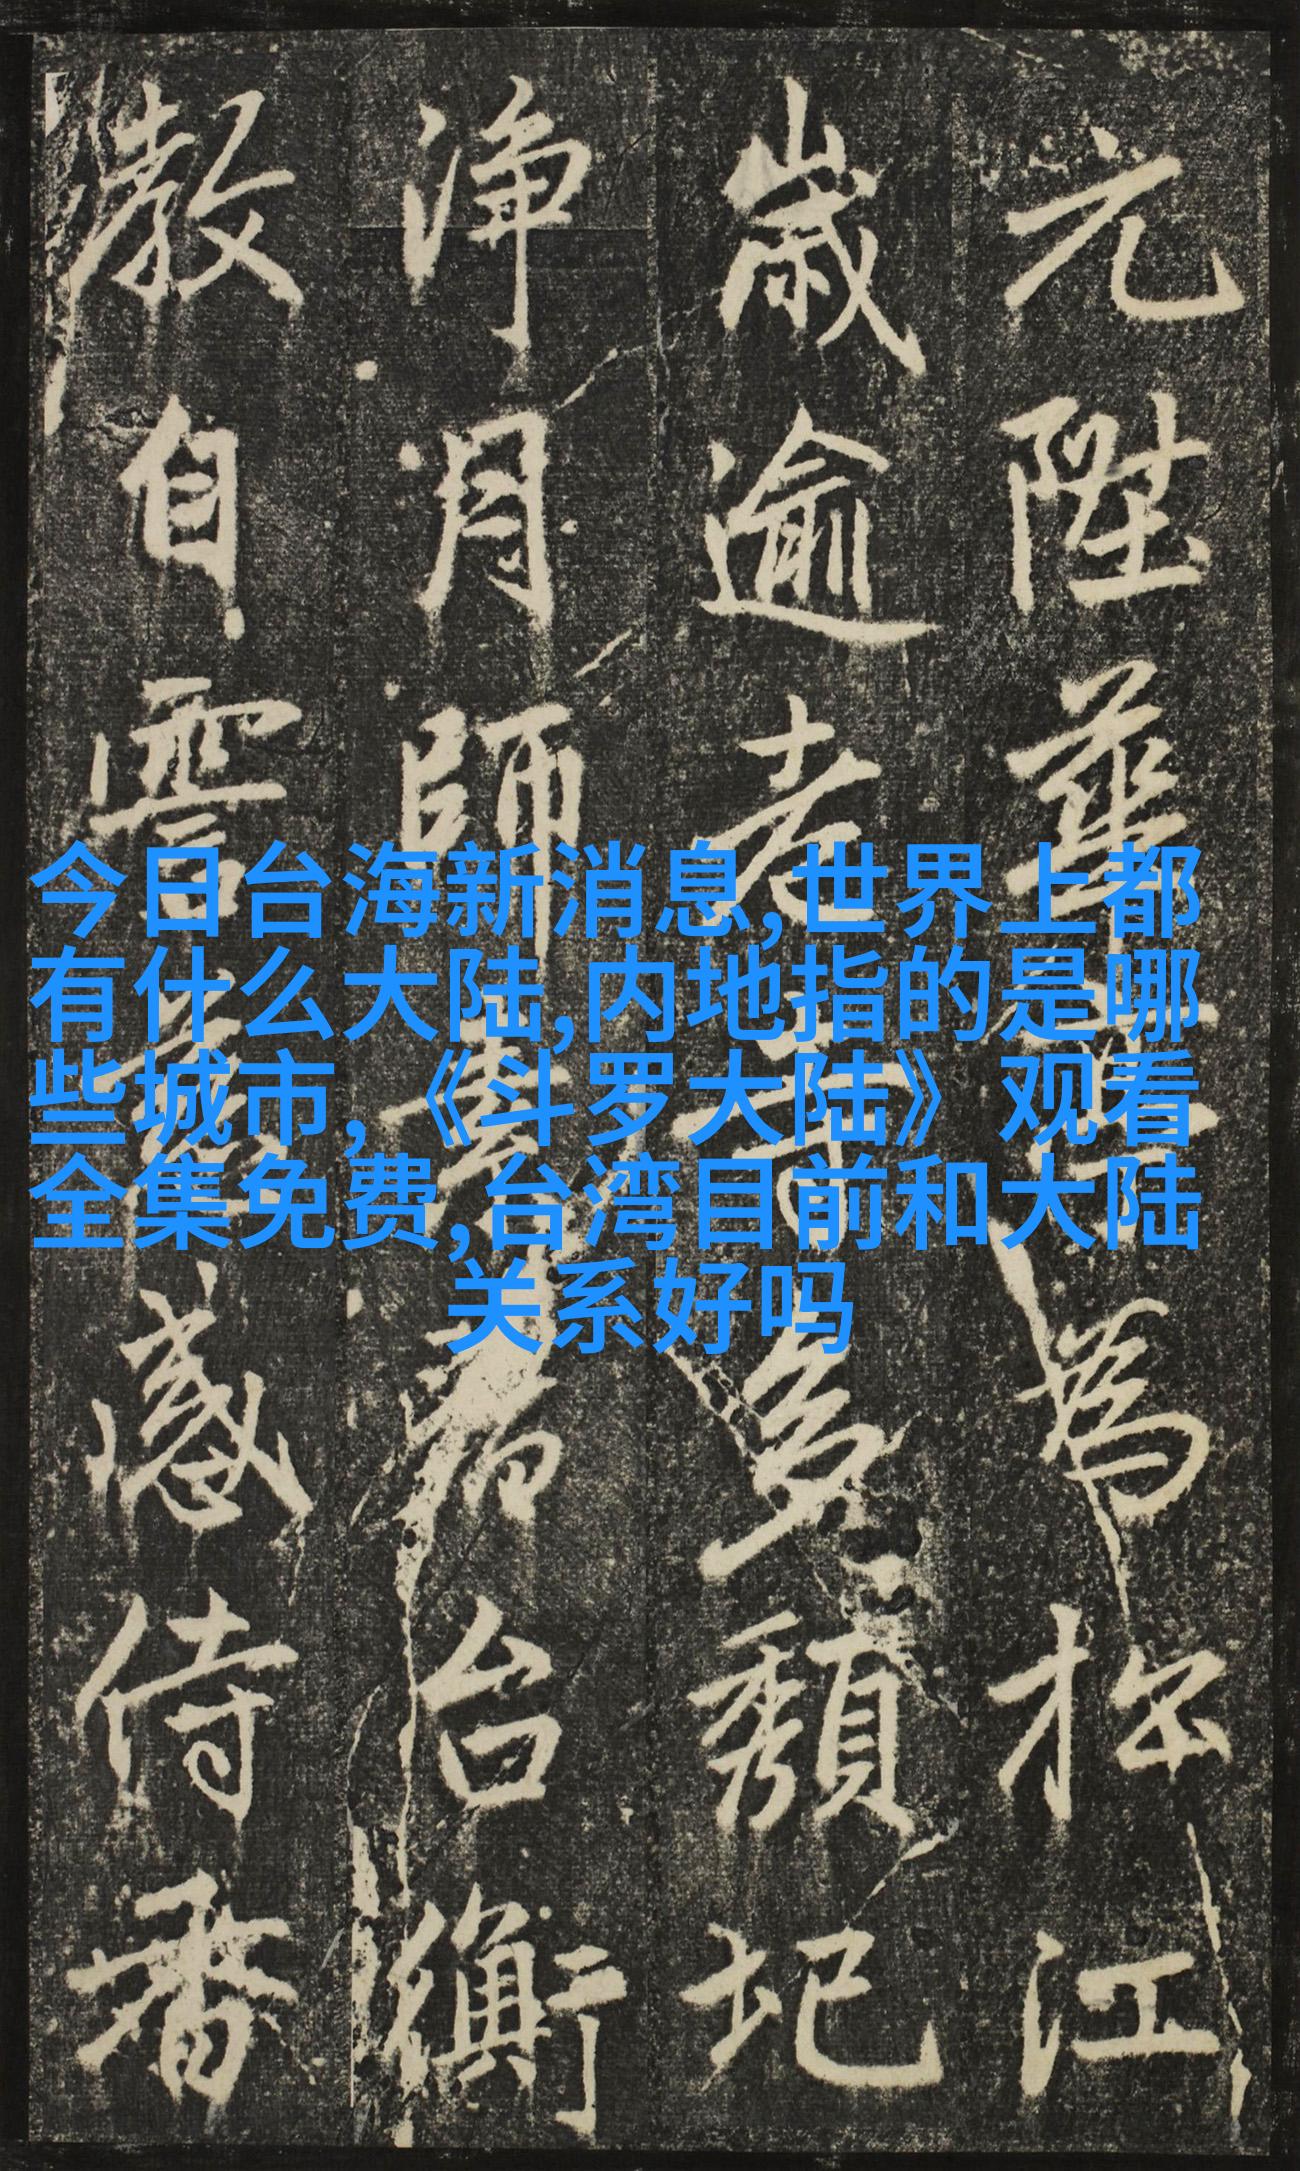 元陞華
為於江
歲逾老
多頹圮
淨月師
台衡
教自雲
感侍香
今日台海新消息,世界上都
有什么大陆,内地指的是哪
些城市,《斗罗大陆》观看
全集免费,台湾目前和大陆
关系好吗